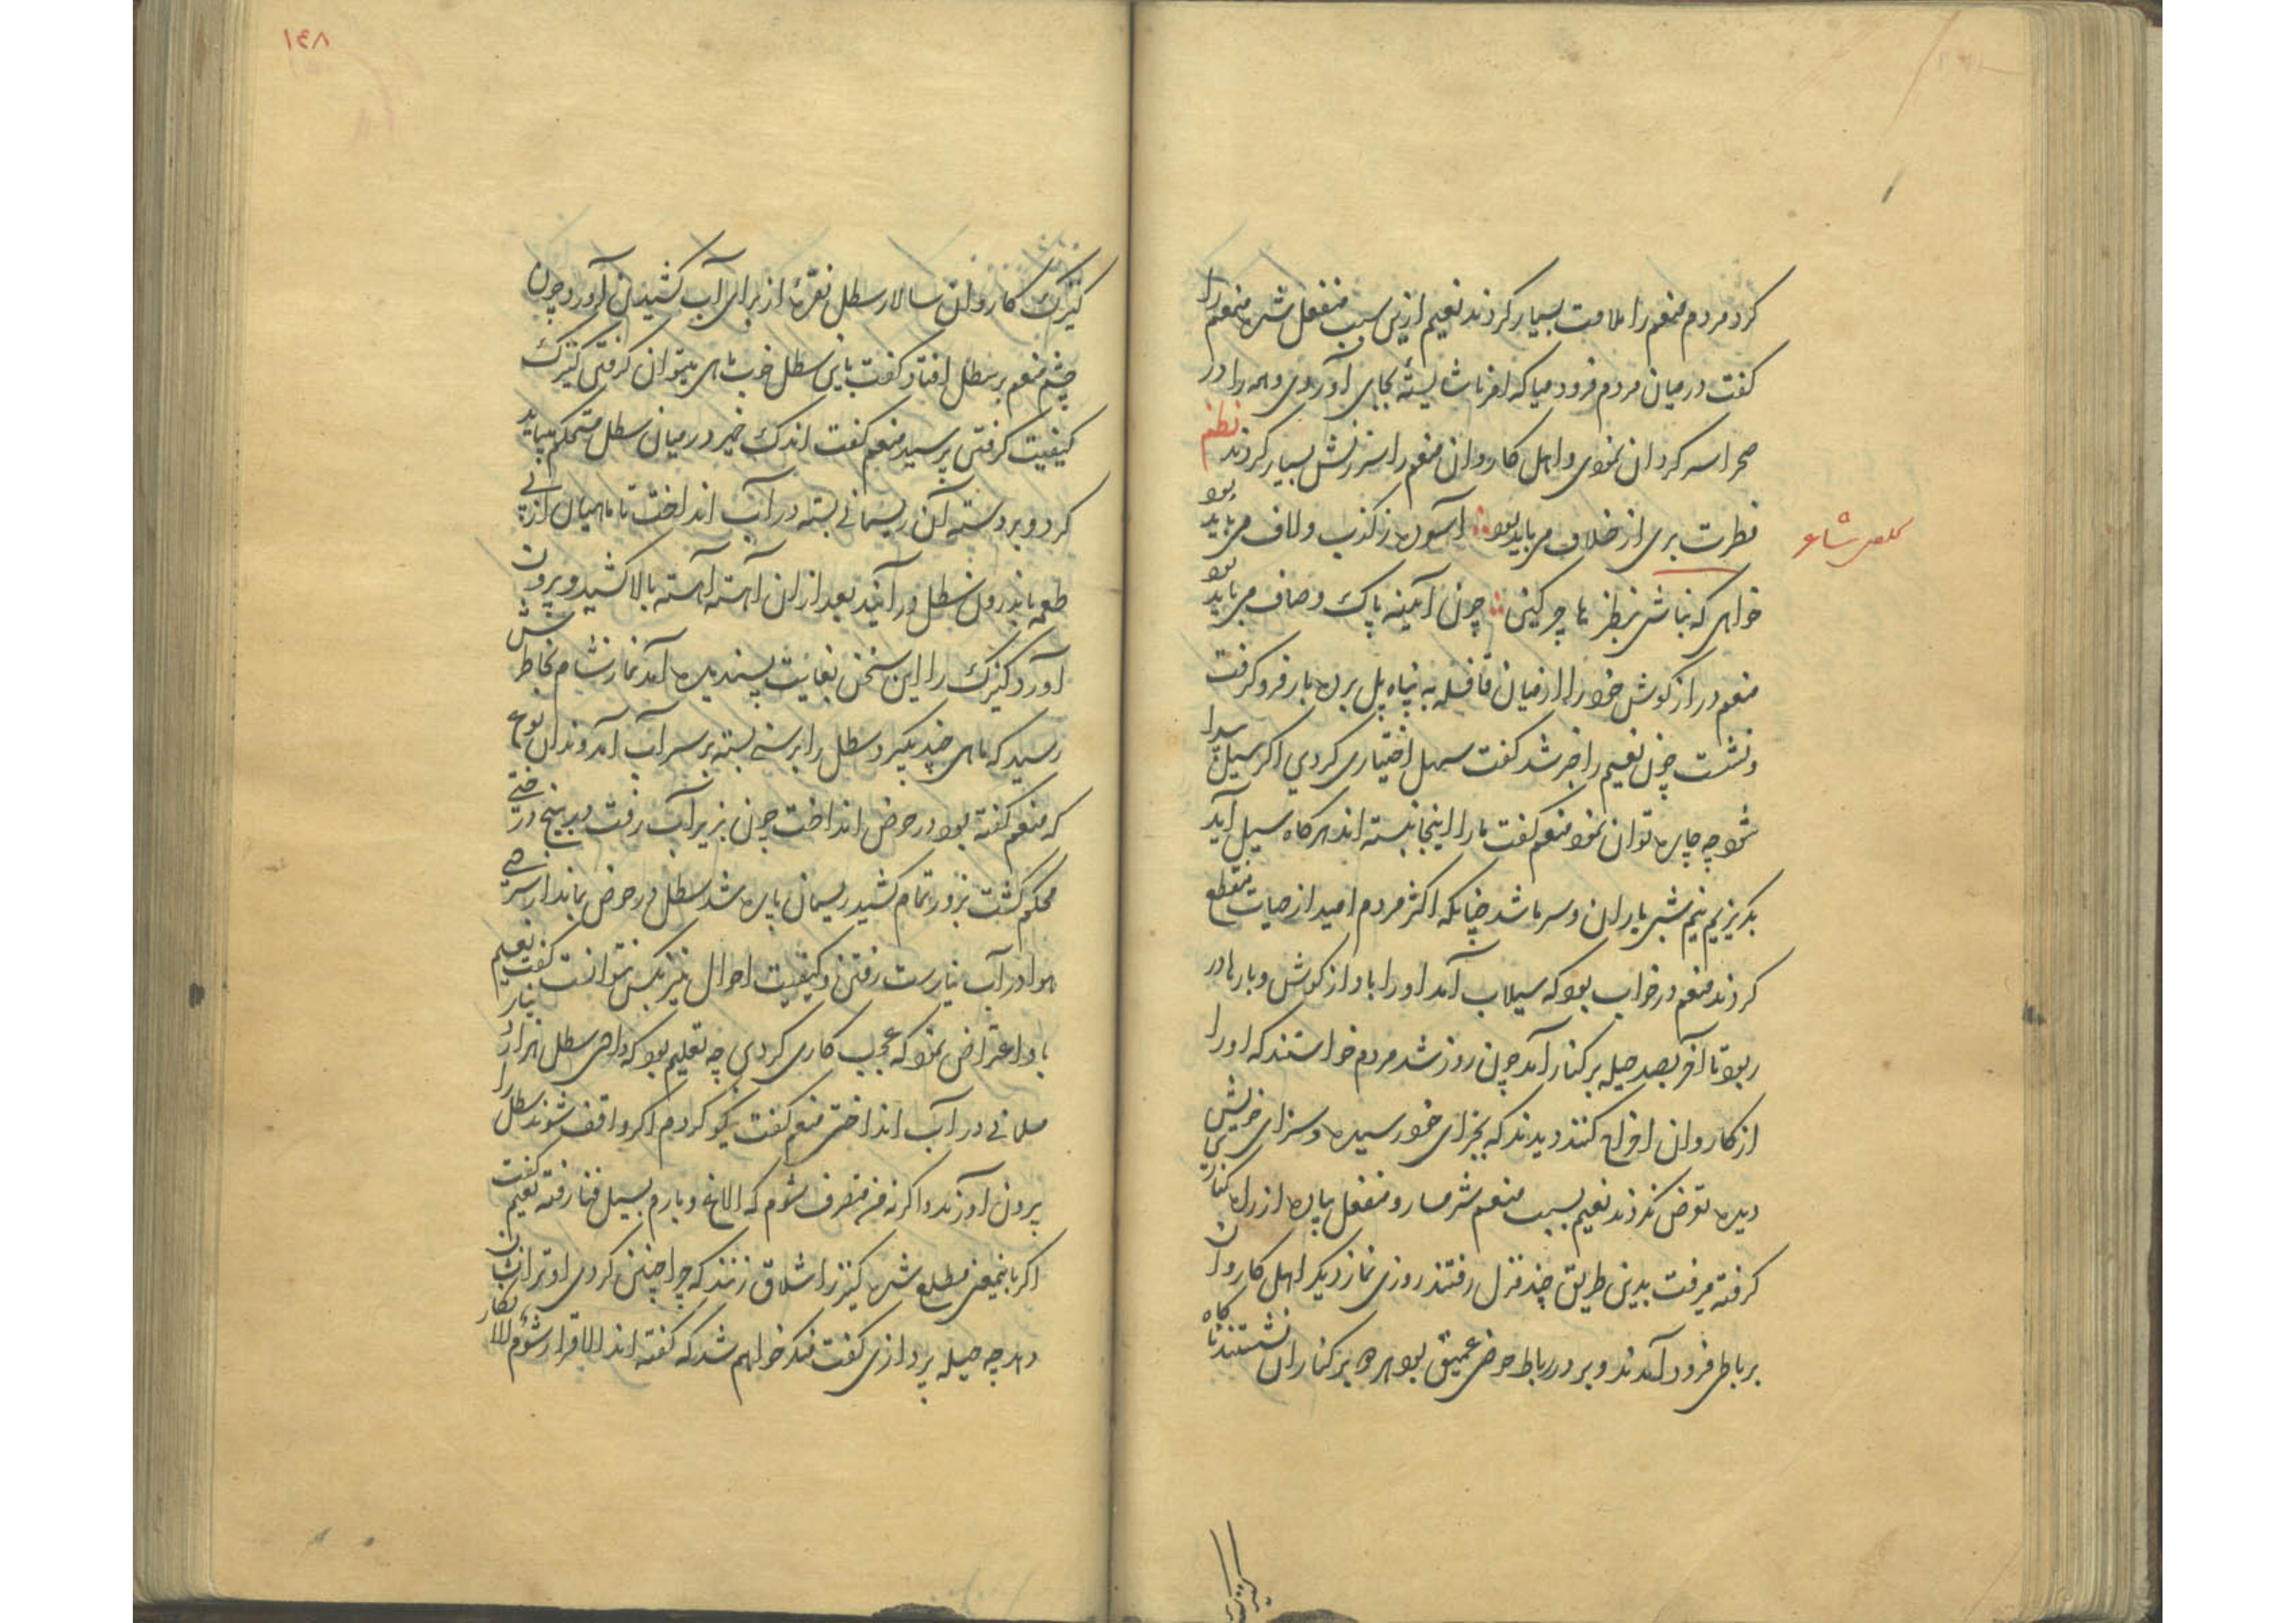 کرد مردم منعم را ملامت بسیار کردند نعیم ازین سبب منفعل شده منعم را
گفت در میان مردم فرود میا که امر ناشایسته بجای آوردی و همه را در
صحرا سه کردان نمودی و اهل کاروان منعم را سرزنش بسیار کردند نظم
فطرت بری از خلاف می باید بود آسوده ز کذب و لاف می باید بود
خواهی که نباشی بنظرها چرکین چون آیینه پاک و صاف می باید بود
تخلص شاعر
منعم دراز کوش خود را از میان قافله به پناه پل برده بار فرو گرفت
و نشست چون نعیم را خبر شد گفت سهل اختیاری کردی اگر سیل پیدا
شود چه چاره توان نمود منعم گفت ما را اینجا نبسته اند هر کاه سیل آید
بگریزیم نیم شب باران و سرما شد چنانکه اکثر مردم امید از حیات منقطع
کردند منعم در خواب بود که سیلاب آمد او را با دراز کوش و بارها در
ربود تا آخر بصد حیله بر کنار آمد چون روز شد مردم خواستند که او را
از کاروان اخراج کنند دیدند که بجزای خود رسیده و سزای خویش
دیده تعرض نکردند نعیم بسبب منعم شرمسار و منفعل پیاده از راه کناری
گرفته میرفت بدین طریق چند منزل رفتند روزی نماز دیگر اهل کاروان
برباطی فرود آمدند و بر در رباط حوض عمیق بود همه بر کنار آن نشستند ناکاه
کنیزک
۱۴۸
کنیزک کاروان سالار سطل نقره از برای آب کشیدن آورد چون
چشم منعم بر سطل افتاد گفت باین سطل خوب ماهی میتوان گرفتن کنیزک
کیفیت گرفتن پرسید منعم گفت اندک خمیر در میان سطل مستحکم بباید
کرد و بر دسته آن ریسمانی بسته در آب انداخت تا ماهیان از پی
طعمه باندرون سطل در آیند بعد از ان آهسته آهسته بالا کشید و بیرون
آورد کنیزک را این سخن بغایت پسندیده آمد نماز شام بخاطرش
رسید که ماهی چند بگیرد سطل را برسنی بسته بر سر آب آمد و بدان نوع
که منعم گفته بود در حوض انداخت چون بزیر آب رفت بر بیخ درختی
محکم گشت بزور تمام کشید ریسمان پاره شد سطل در حوض بماند از سردی
هوا در آب نیارست رفتن و کیفیت احوال نیز بکس نتوانست گفت نعیم
با او اعتراض نمود که عجب کاری کردی چه تعلیم بود که دادی سطل هزار دینار
مسلمانی در آب انداختی منعم گفت نیکو کردم اگر واقف شوند سطل را
بیرون آورند و اگرنه من متصرف شوم که الاغ و بارم بسیل فنا رفته نعیم گفت
اگر باینمعنی مطلع شده کنیز را شلاق زنند که چرا چنین کردی او ترا نشان
دهد چه حیله پردازی گفت منکر خواهم شد که گفته اند الاقرار شوم الانکار